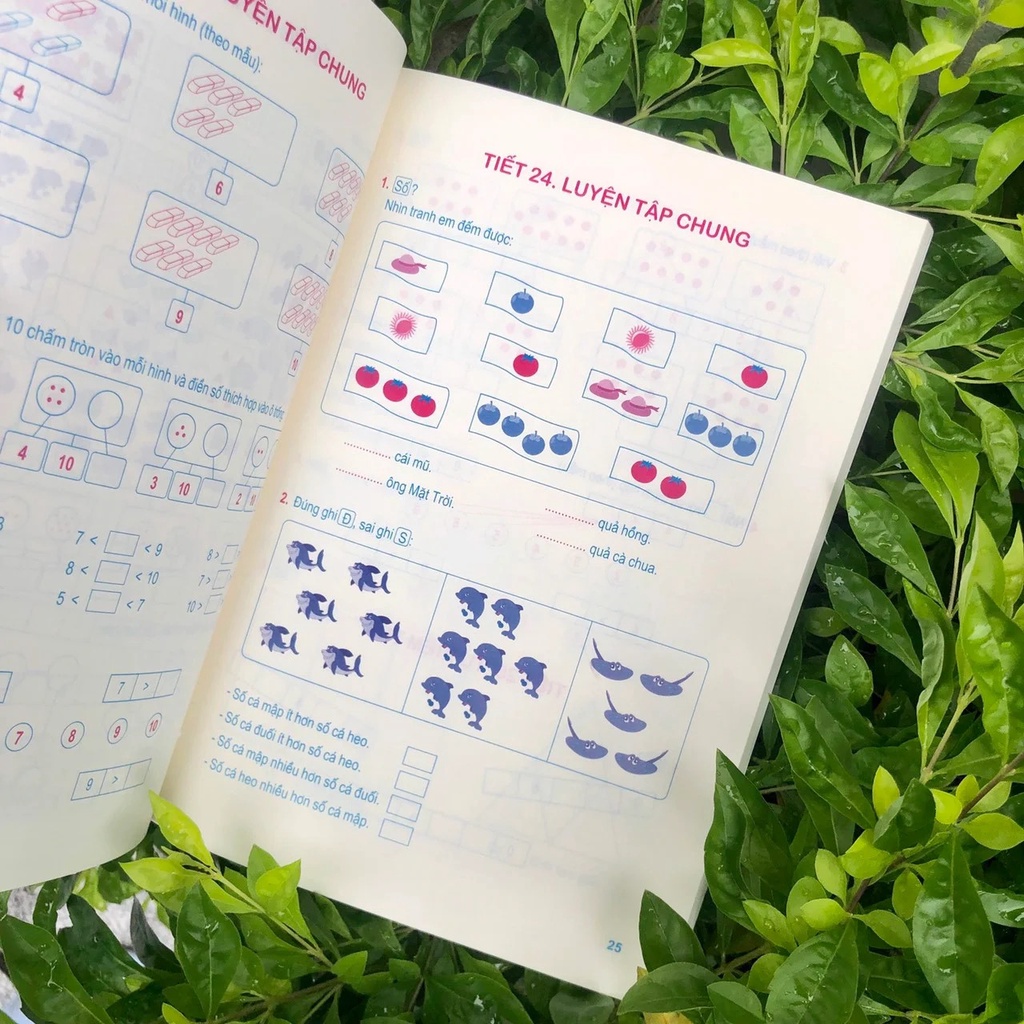 UYỆN TẬP CHUNG
mỗi hình (theo mẫu):
4
6
9
10 chấm tròn vào mỗi hình và điền số thích hợp vào ô trống
4 10
3 10
7 < < 9
8 < < 10
5 < < 7
8 >
7 >
10 >
7 >
7 8 9 10
9 >
TIẾT 24. LUYỆN TẬP CHUNG
1. Số ?
Nhìn tranh em đếm được:
............ cái mũ.
............ ông Mặt Trời.
............ quả hồng.
............ quả cà chua.
2. Đúng ghi Đ, sai ghi S:
- Số cá mập ít hơn số cá heo.
- Số cá đuối ít hơn số cá heo.
- Số cá mập nhiều hơn số cá đuối.
- Số cá heo nhiều hơn số cá mập.
25